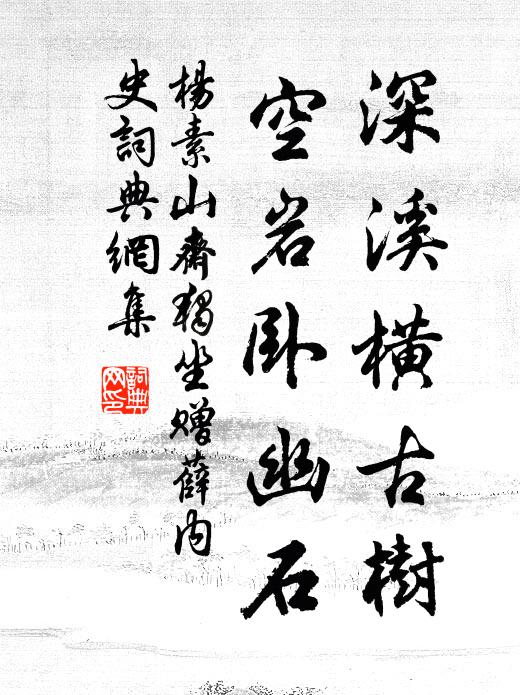 深溪橫古樹
空岩臥幽石
楊素山齋獨坐贈薛內
史詞典網集
詞典
网印